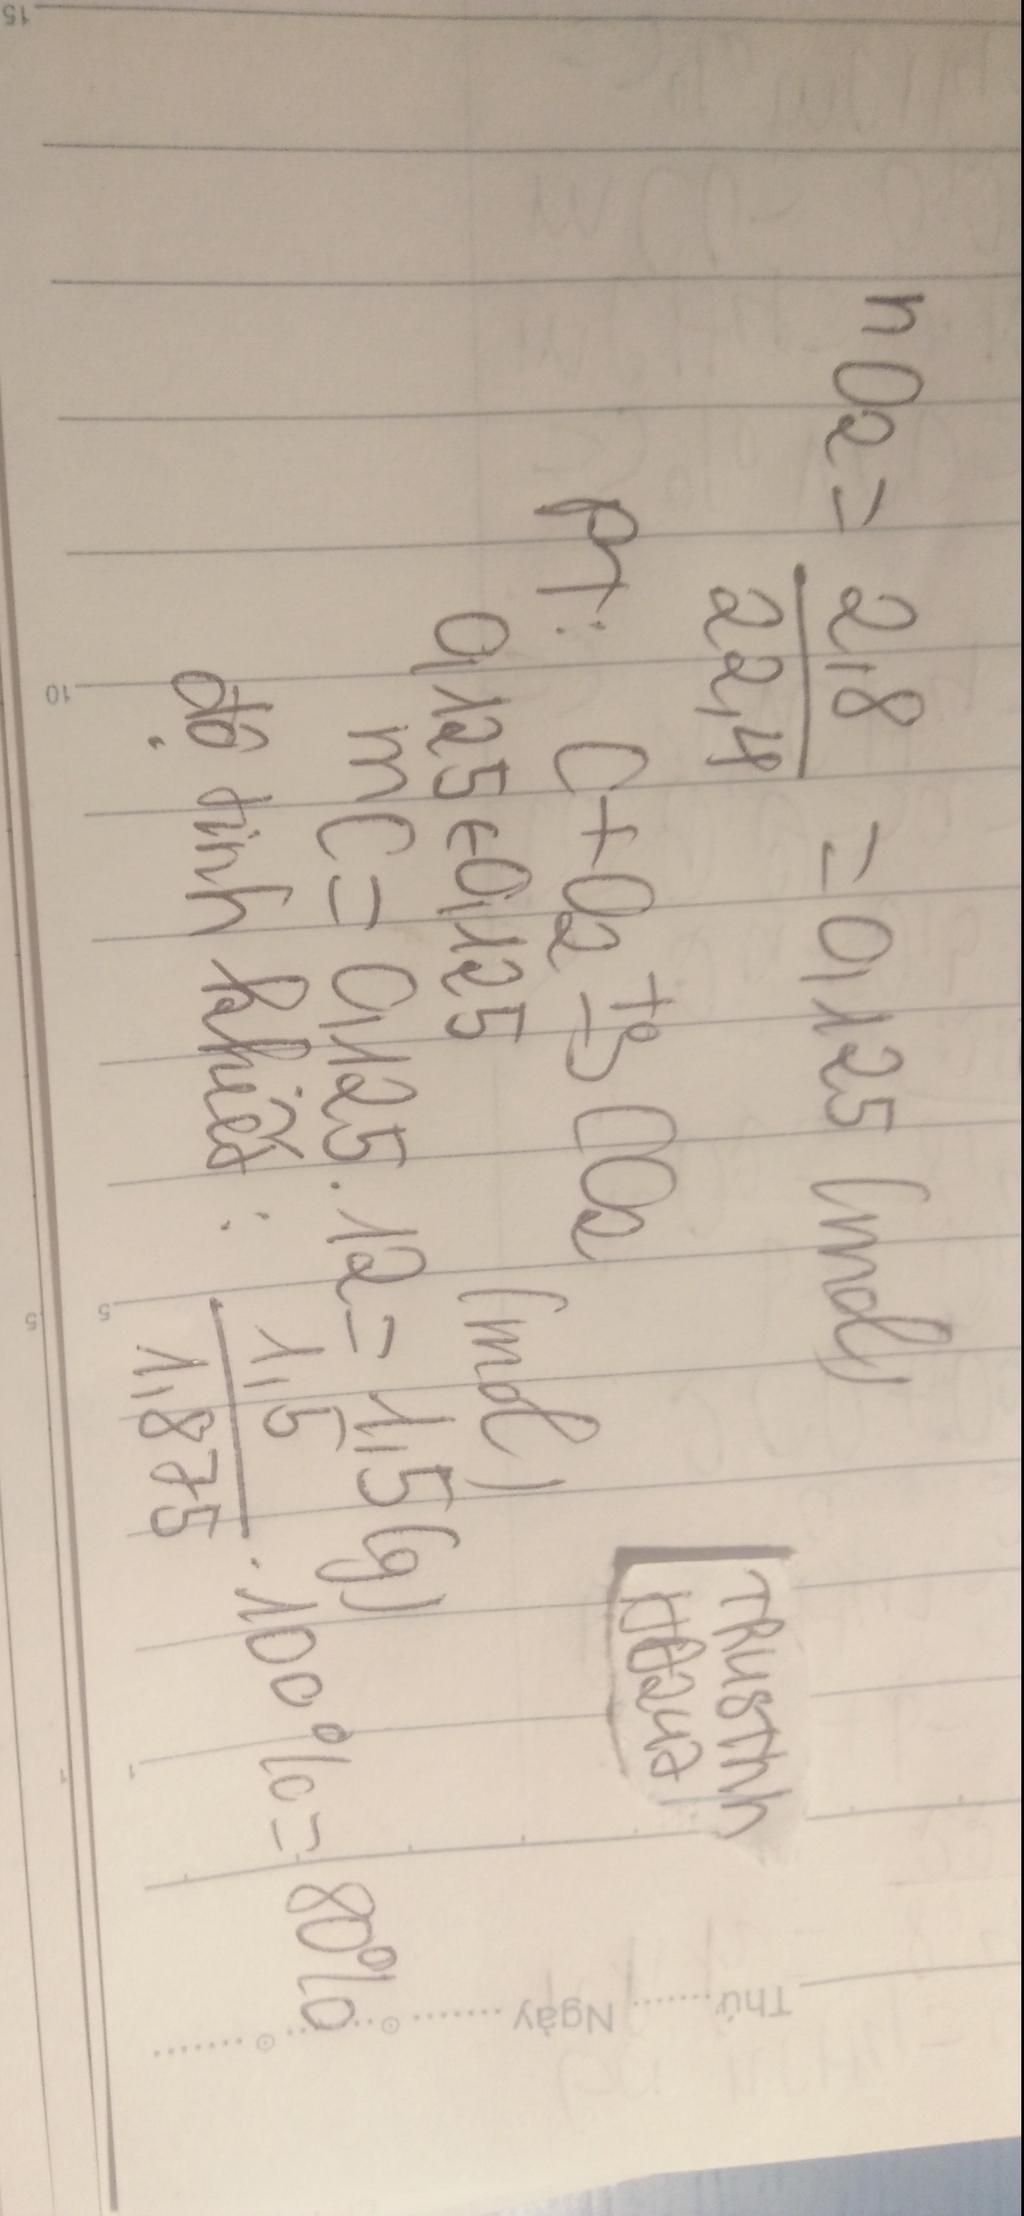 nO2 = 2,8 / 22,4 = 0,125 (mol)
PT: C + O2 t° → CO2
0,125 ← 0,125 (mol)
mC = 0,125 . 12 = 1,5 (g)
độ tinh khiết : 1,5 / 1,875 . 100% = 80%
Thứ Ngày
15
10
5
5
1
1